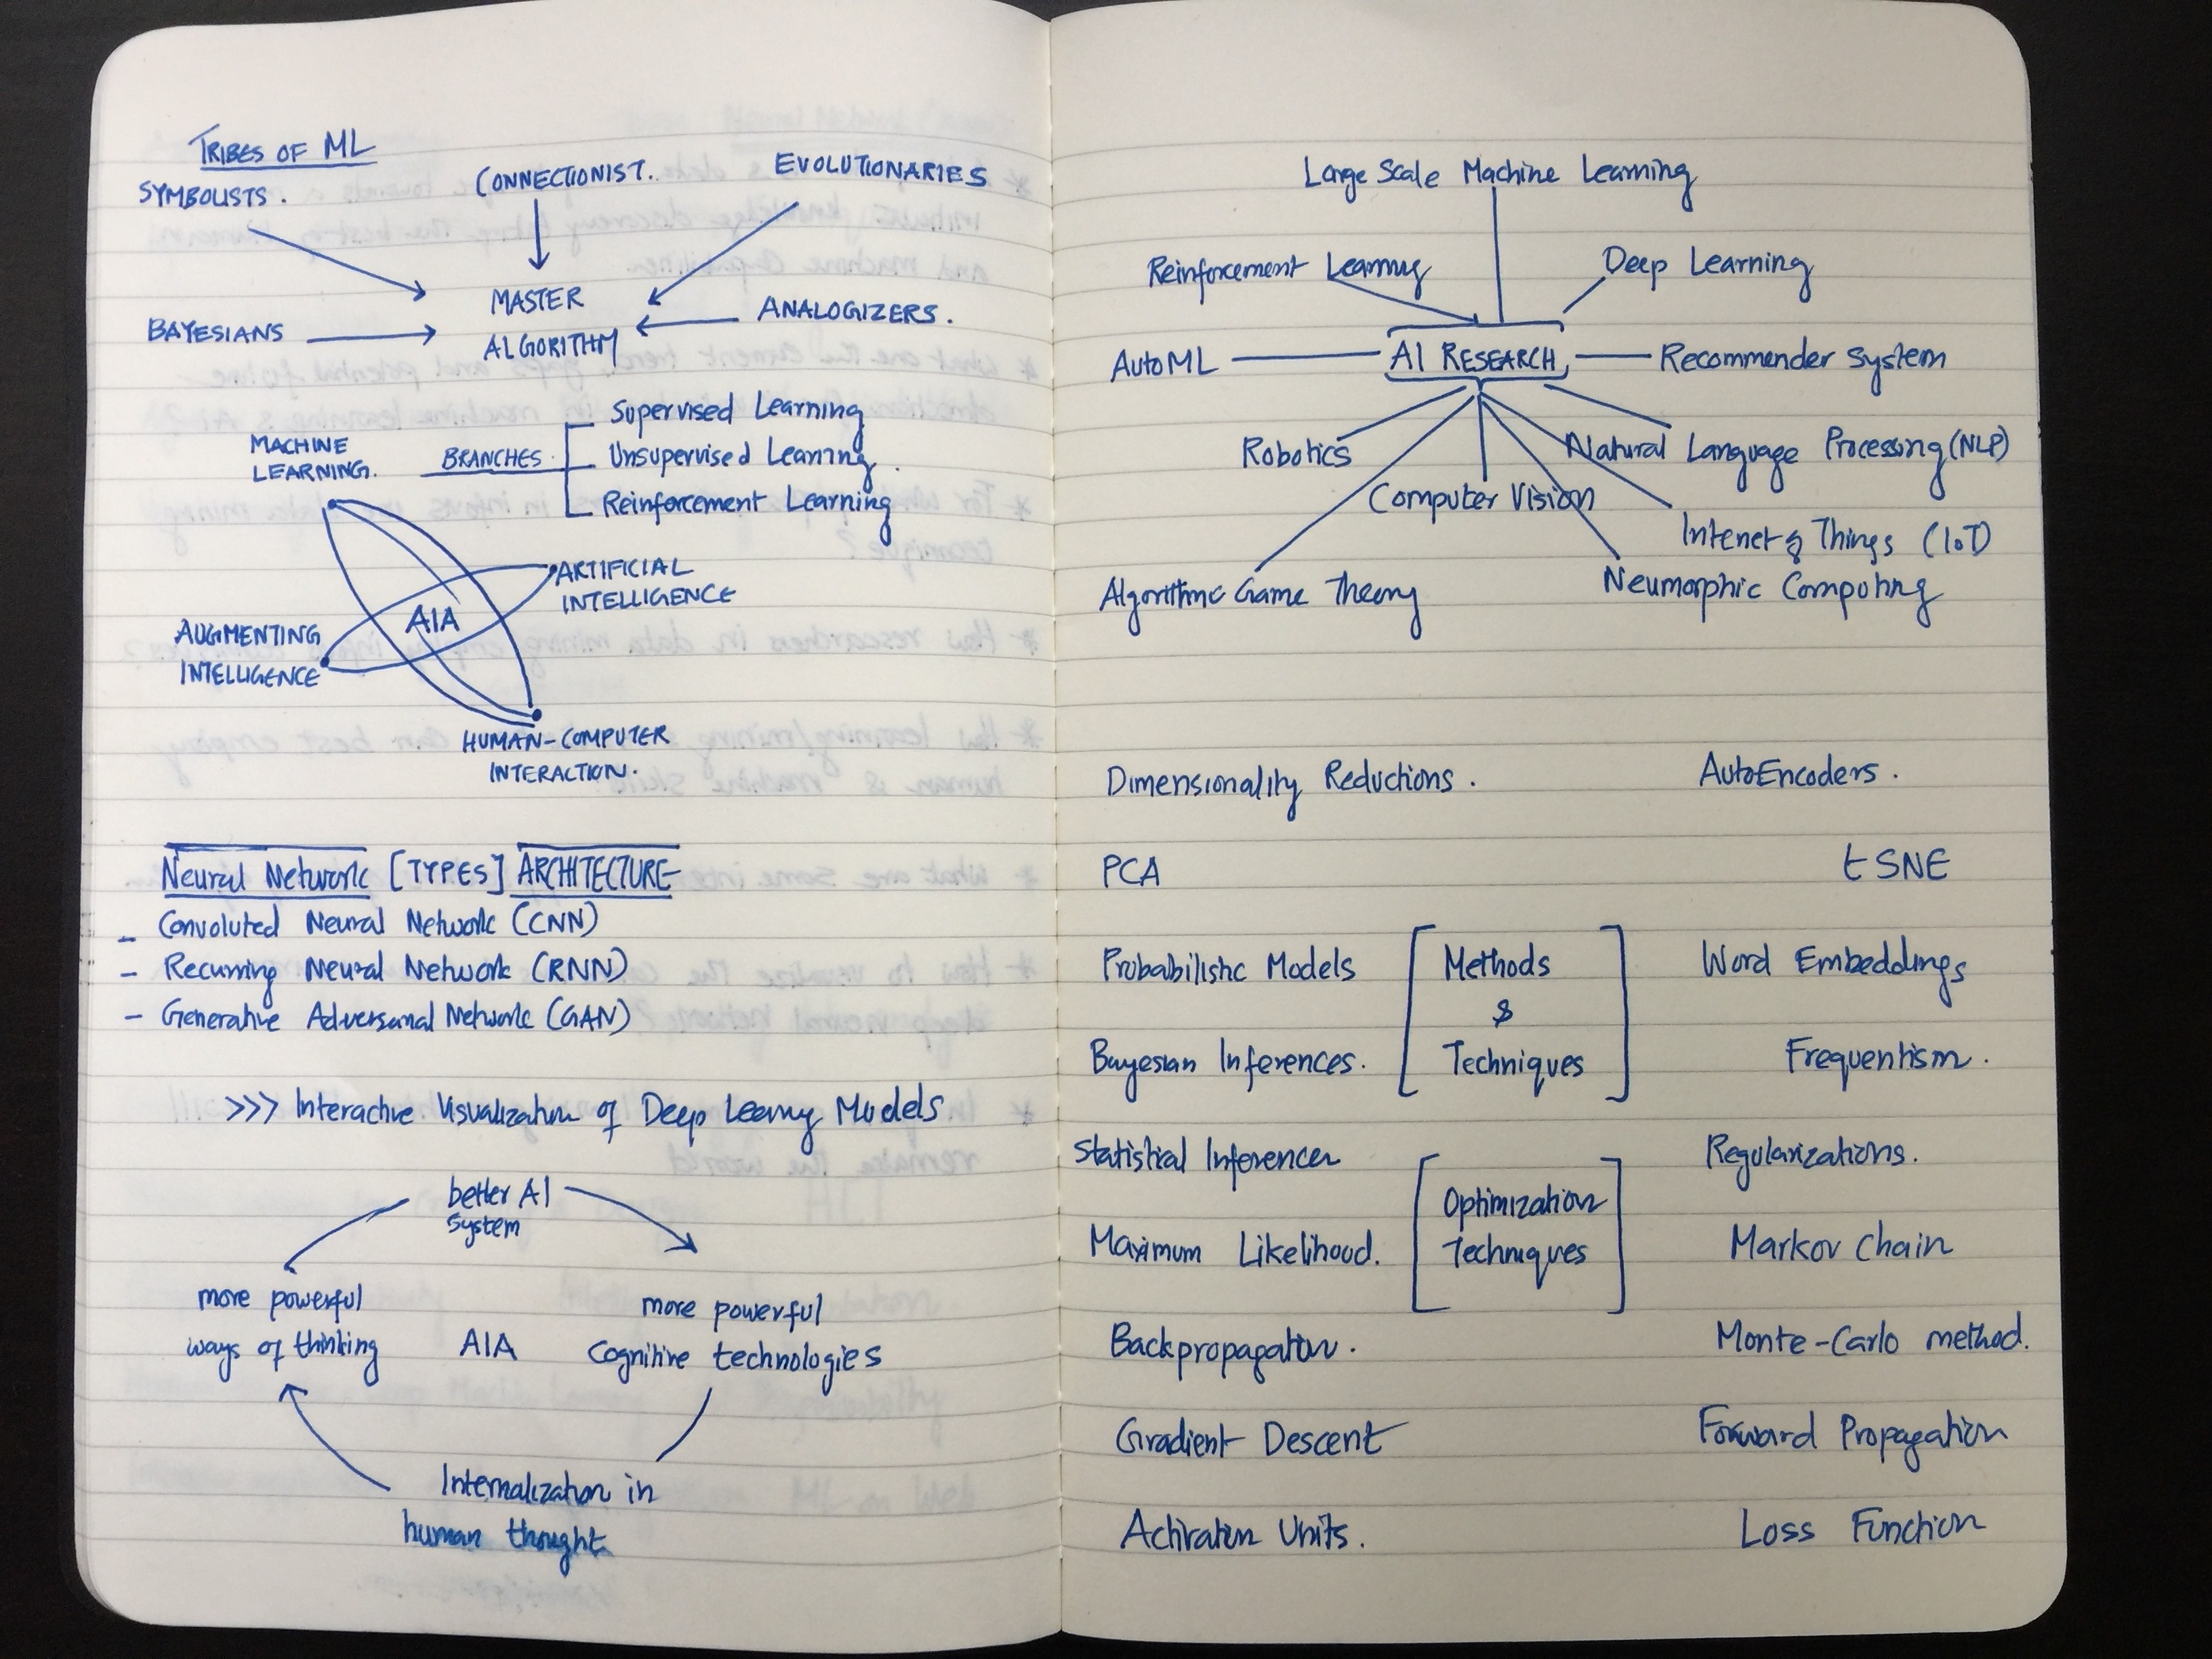 TRIBES OF ML
SYMBOLISTS.
CONNECTIONIST.
EVOLUTIONARIES
MASTER
ALGORITHM
BAYESIANS
ANALOGIZERS.
MACHINE
LEARNING.
BRANCHES
Supervised Learning
Unsupervised Learning.
Reinforcement Learning
AIA
ARTIFICIAL
INTELLIGENCE
AUGMENTING
INTELLIGENCE
HUMAN-COMPUTER
INTERACTION.
Neural Network [TYPES] ARCHITECTURE
- Convoluted Neural Network (CNN)
- Recurring Neural Network (RNN)
- Generative Adversarial Network (GAN)
>>> Interactive Visualization of Deep Learning Models
better AI
system
more powerful
ways of thinking
AIA
more powerful
cognitive technologies
Internalization in
human thought
Large Scale Machine Learning
Reinforcement Learning
Deep Learning
AutoML
AI RESEARCH
Recommender System
Robotics
Natural Language Processing (NLP)
Computer Vision
Internet of Things (IoT)
Algorithmic Game Theory
Neumorphic Computing
Dimensionality Reductions.
AutoEncoders.
PCA
t SNE
Probabilistic Models
Methods
&
Techniques
Word Embeddings
Bayesian Inferences.
Frequentism.
Statistical Inferences
Regularizations.
Optimization
Techniques
Maximum Likelihood.
Markov Chain
Backpropagation.
Monte-Carlo method.
Gradient Descent
Forward Propagation
Activation Units.
Loss Function